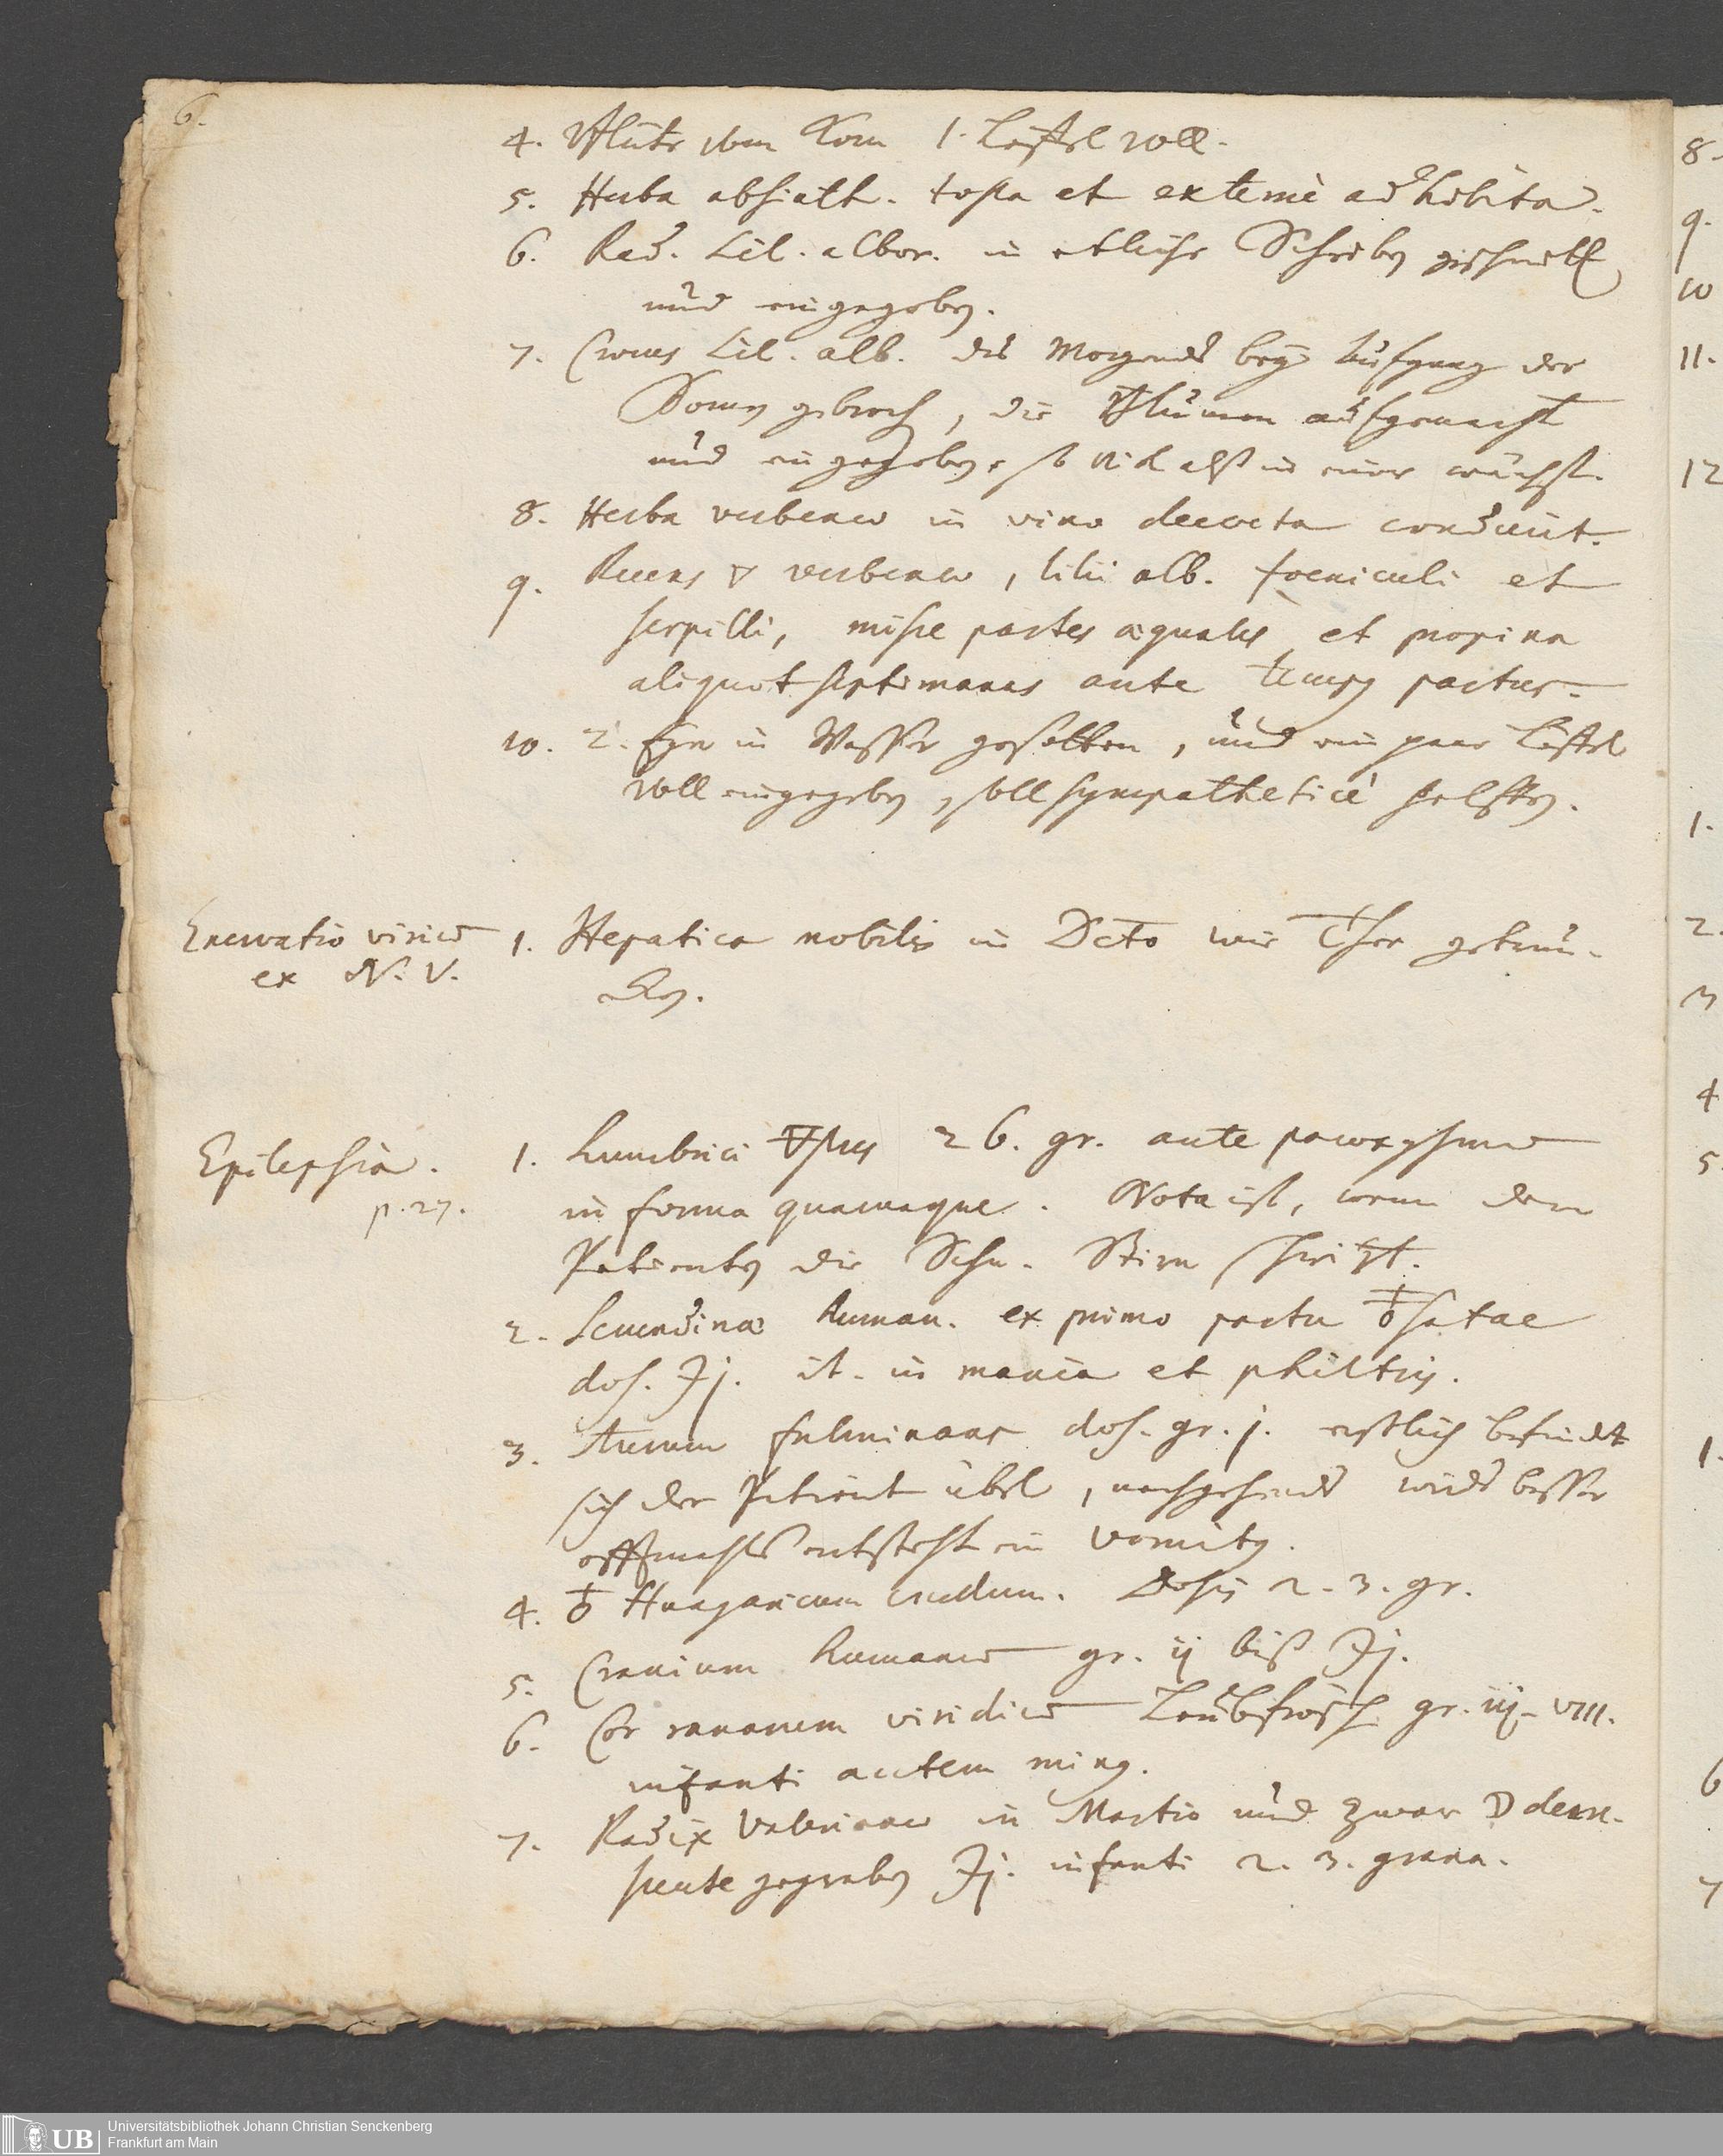 6.
4. Blüte vom Korn 1. Löffel voll.
5. Herba absinth. tosta et externè adhibita.
6. Rad. Lil. albor. in etliche Scheiben zerschnitt
und eingegeben.
7. Crocus Lil. alb. des Morgends bey Aufgang der
Sonnen gebroch, die Blumen aufgemacht
und eingegeben, so viel alß in einer wächst.
8. Herba verbenae in vino decocta conducit.
9. Recens ▽ verbenae, lilii alb. foeniculi et
serpilli, misce partes aequales et propina
aliquot septimanas ante tempus partus.
10. 2. Eyer in Wasser gesotten, und ein paar Löffel
voll eingegeben, soll sympatheticè helffen.
Enervatio virium
ex N. V.
1. Hepatica nobilis in Dcto wie Thee getrun-
ken.
Epilepsia.
p. 27.
1. Lumbrici 26. gr. ante paroxysmum
in forma quacunque. Nota ist, wenn dem
Patienten die Stirn schwitzt.
2. Secundinae human. ex primo partu
dos. ʒj. it. in mania et philtris.
3. Aurum fulminans dos. gr. j. erstlich befindt
sich der Patient übel, nachgehends wieder besser
offtmahls entsteht ein vomitus.
4. ♁ Hungaricum crudum. Dosis 2. 3. gr.
5. Cranium humanum gr. ij biß ʒj.
6. Cor ranarum viridium Laubfrösch gr. iij - VIII.
infanti autem minus.
7. Radix Valerianae in Martio und zwar ☽ decre-
scente gegraben ʒj. infanti 2. 3. grana.
8.
9.
10
11.
12
1.
2.
3
4
5.
1.
6
7
Universitätsbibliothek Johann Christian Senckenberg
Frankfurt am Main
UB